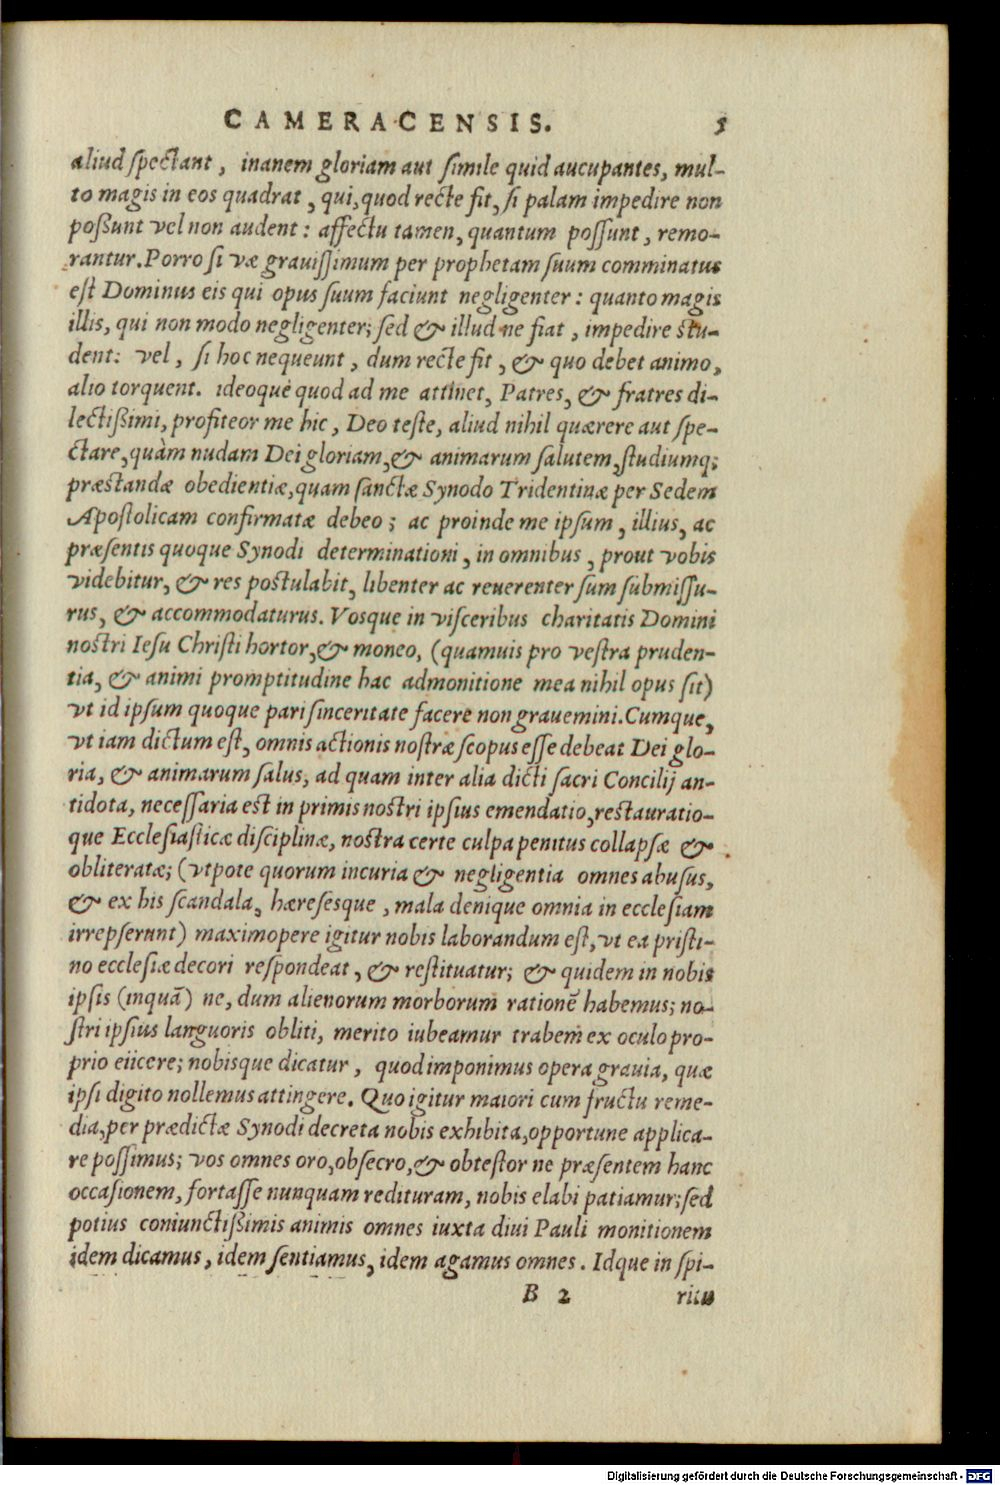 CAMERACENSIS. 5
aliud spectant, inanem gloriam aut simile quid aucupantes, mul-
to magis in eos quadrat, qui, quod recte fit, si palam impedire non
poßunt vel non audent: affectu tamen, quantum possunt, remo-
rantur. Porro si væ grauissimum per prophetam suum comminatus
est Dominus eis qui opus suum faciunt negligenter: quanto magis
illis, qui non modo negligenter; sed & illud ne fiat, impedire stu-
dent: vel, si hoc nequeunt, dum recte fit, & quo debet animo,
alio torquent. ideoque quod ad me attinet, Patres, & fratres di-
lectißimi, profiteor me hic, Deo teste, aliud nihil quærere aut spe-
ctare, quàm nudam Dei gloriam, & animarum salutem, studiumq;
præstandæ obedientiæ, quam sanctæ Synodo Tridentinæ per Sedem
Apostolicam confirmatæ debeo; ac proinde me ipsum, illius, ac
præsentis quoque Synodi determinationi, in omnibus, prout vobis
videbitur, & res postulabit, libenter ac reuerenter sum submissu-
rus, & accommodaturus. Vosque in visceribus charitatis Domini
nostri Iesu Christi hortor, & moneo, (quamuis pro vestra pruden-
tia, & animi promptitudine hac admonitione mea nihil opus sit)
vt id ipsum quoque pari sinceritate facere non grauemini. Cumque,
vt iam dictum est, omnis actionis nostræ scopus esse debeat Dei glo-
ria, & animarum salus, ad quam inter alia dicti sacri Concilij an-
tidota, necessaria est in primis nostri ipsius emendatio, restauratio-
que Ecclesiasticæ disciplinæ, nostra certe culpa penitus collapsæ &
obliteratæ; (vtpote quorum incuria & negligentia omnes abusus,
& ex his scandala, hæresesque, mala denique omnia in ecclesiam
irrepserunt) maximopere igitur nobis laborandum est, vt ea pristi-
no ecclesiæ decori respondeat, & restituatur; & quidem in nobis
ipsis (inquā) ne, dum alienorum morborum rationē habemus; no-
stri ipsius languoris obliti, merito iubeamur trabem ex oculo pro-
prio eiicere; nobisque dicatur, quod imponimus opera grauia, quæ
ipsi digito nollemus attingere. Quo igitur maiori cum fructu reme-
dia, per prædictæ Synodi decreta nobis exhibita, opportune applica-
re possimus; vos omnes oro, obsecro, & obtestor ne præsentem hanc
occasionem, fortasse nunquam redituram, nobis elabi patiamur; sed
potius coniunctißimis animis omnes iuxta diui Pauli monitionem
idem dicamus, idem sentiamus, idem agamus omnes. Idque in spi-
B 2 ritu
Digitalisierung gefördert durch die Deutsche Forschungsgemeinschaft - DFG